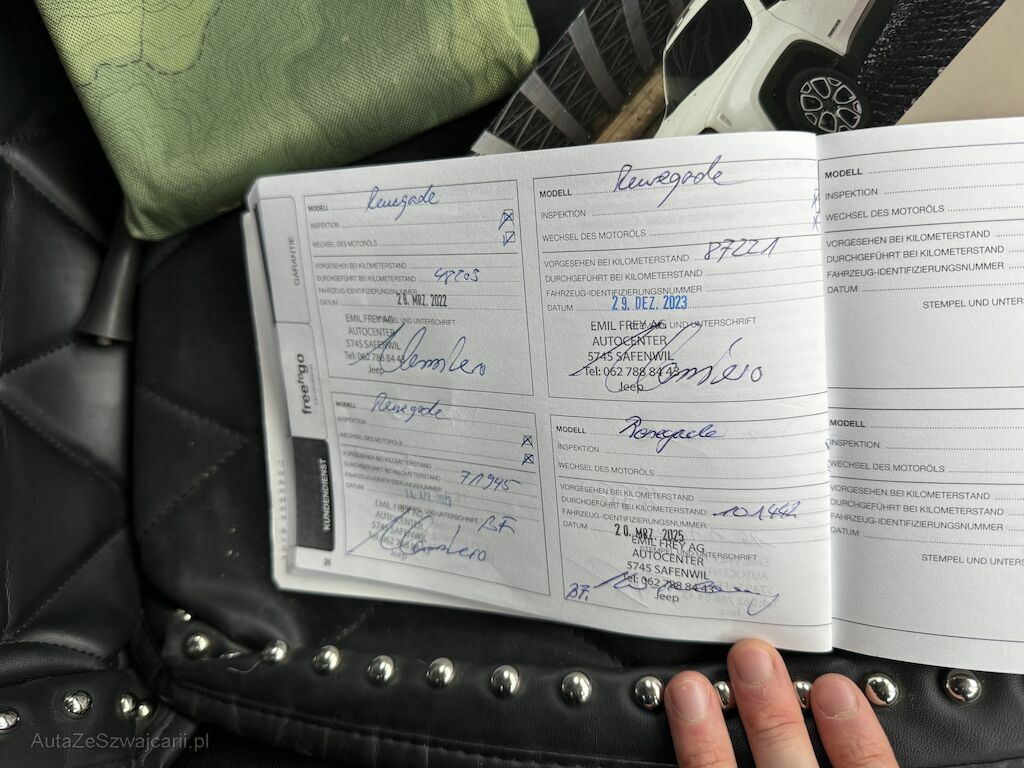 GARANTIE
freetogo
KUNDENDIENST
MODELL Renegade
INSPEKTION
WECHSEL DES MOTORÖLS
VORGESEHEN BEI KILOMETERSTAND
DURCHGEFÜHRT BEI KILOMETERSTAND
FAHRZEUG-IDENTIFIZIERUNGSNUMMER
DATUM 28. MRZ. 2022
STEMPEL UND UNTERSCHRIFT
EMIL FREY AG
AUTOCENTER
5745 SAFENWIL
Tel: 062 788 84 43
Jeep
MODELL Renegade
INSPEKTION
WECHSEL DES MOTORÖLS
VORGESEHEN BEI KILOMETERSTAND
DURCHGEFÜHRT BEI KILOMETERSTAND 71945
FAHRZEUG-IDENTIFIZIERUNGSNUMMER
DATUM APR. 2023
STEMPEL UND UNTERSCHRIFT
EMIL FREY AG
AUTOCENTER
5745 SAFENWIL
BF
MODELL Renegade
INSPEKTION
WECHSEL DES MOTORÖLS
VORGESEHEN BEI KILOMETERSTAND 87221
DURCHGEFÜHRT BEI KILOMETERSTAND
FAHRZEUG-IDENTIFIZIERUNGSNUMMER
DATUM 29. DEZ. 2023
STEMPEL UND UNTERSCHRIFT
EMIL FREY AG
AUTOCENTER
5745 SAFENWIL
Tel: 062 788 84 43
Jeep
MODELL Renegade
INSPEKTION
WECHSEL DES MOTORÖLS
VORGESEHEN BEI KILOMETERSTAND
DURCHGEFÜHRT BEI KILOMETERSTAND 101442
FAHRZEUG-IDENTIFIZIERUNGSNUMMER
DATUM 20. MRZ. 2025
STEMPEL UND UNTERSCHRIFT
EMIL FREY AG
AUTOCENTER
5745 SAFENWIL
Tel: 062 788 84 43
Jeep
BF.
MODELL
INSPEKTION
WECHSEL DES MOTORÖLS
VORGESEHEN BEI KILOMETERSTAND
DURCHGEFÜHRT BEI KILOMETERSTAND
FAHRZEUG-IDENTIFIZIERUNGSNUMMER
DATUM
STEMPEL UND UNTER
MODELL
INSPEKTION
WECHSEL DES MOTORÖLS
VORGESEHEN BEI KILOMETERSTAND
DURCHGEFÜHRT BEI KILOMETERSTAND
FAHRZEUG-IDENTIFIZIERUNGSNUMMER
DATUM
STEMPEL UND UNTERS
AutaZeSzwajcarii.pl